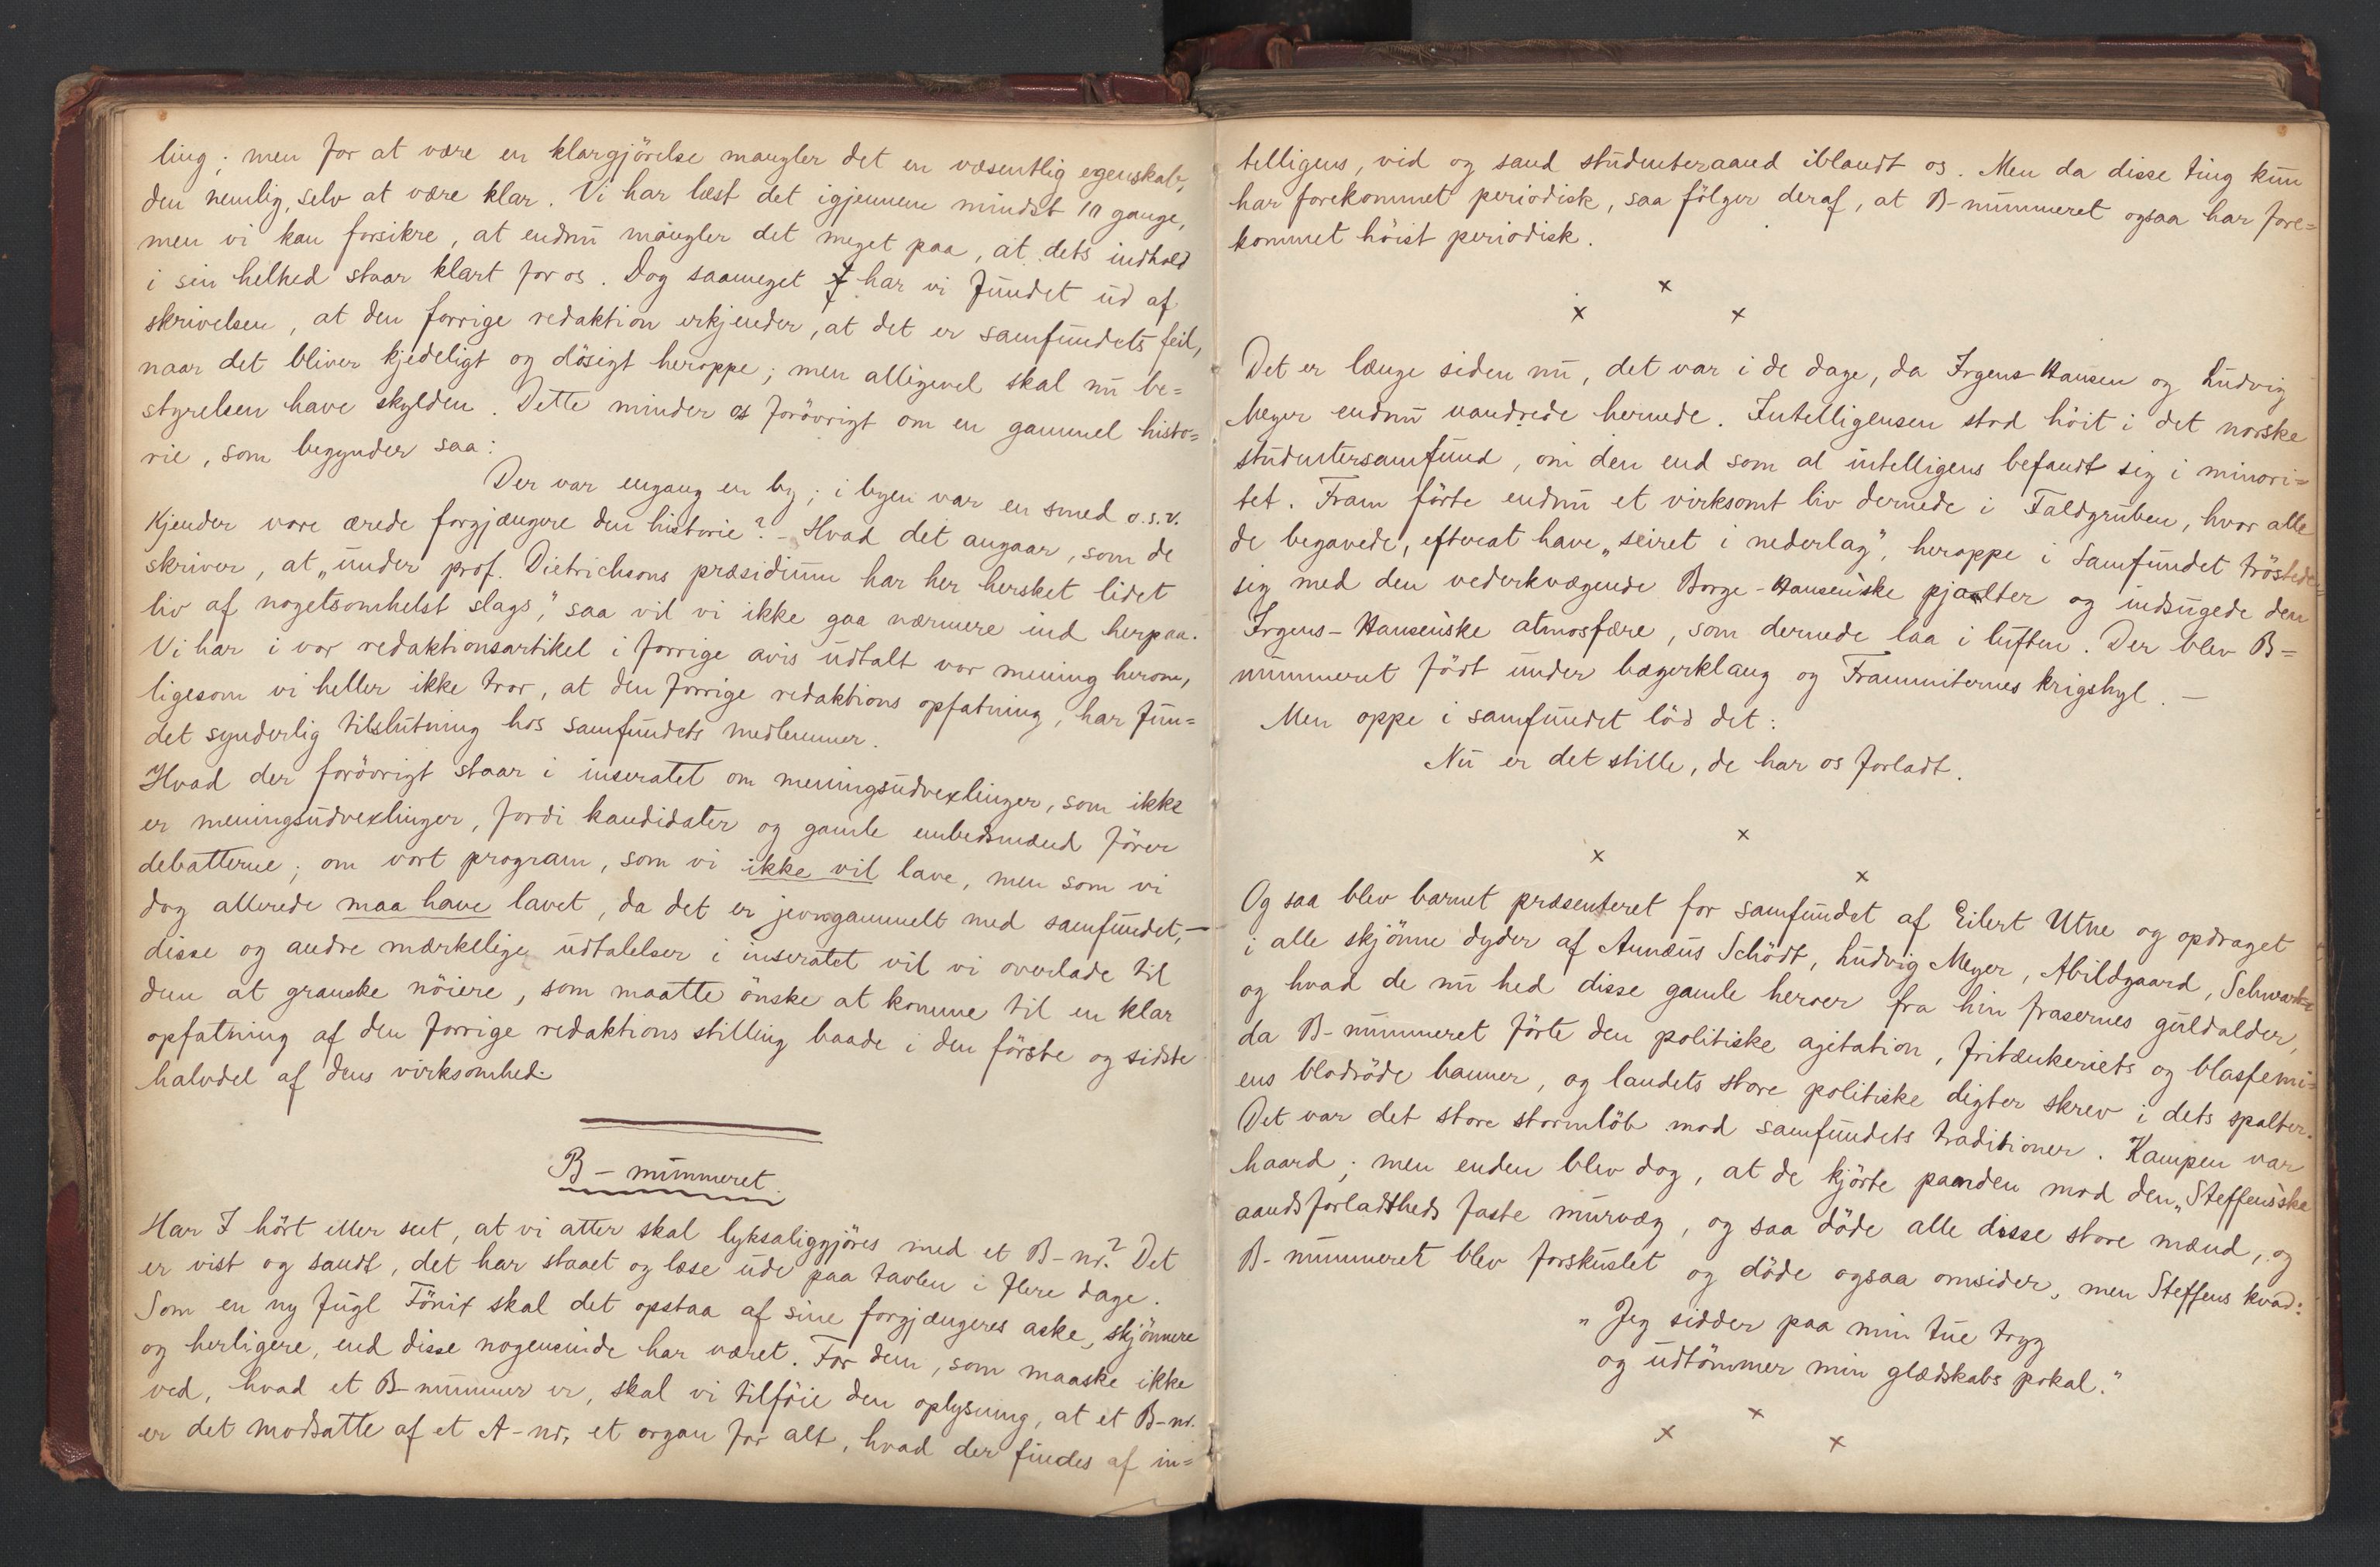 ling; men for at være en klargjörelse mangler det en væsentlig egenskab,
den nemlig, selv at være klar. Vi har læst det igjennem mindst 10 gange,
men vi kan forsikre, at endnu mangler det meget paa, at dets indhold
i sin helhed staar klart for os. Dog saameget har vi fundet ud af
skrivelsen, at den forrige redaktion erkjender, at det er samfundets feil,
naar det bliver kjedeligt og dösigt heroppe; men alligevel skal nu be=
styrelsen have skylden. Dette minder os forövrigt om en gammel histo=
rie, som begynder saa:
Der var engang en by; i byen var en smed o.s.v.
Kjender vore ærede forgjængere den historie? - Hvad det angaar, som de
skriver, at „under prof. Dietrichsons præsidium har her hersket lidet
liv af nogetsomhelst slags," saa vil vi ikke gaa nærmere ind herpaa.
Vi har i vor redaktionsartikel i forrige avis udtalt vor mening herom,
ligesom vi heller ikke tror, at den forrige redaktions opfatning, har fun=
det synderlig tilslutning hos samfundets medlemmer.
Hvad der forövrigt staar i inseratet om meningsudvexlinger, som ikke
er meningsudvexlinger, fordi kandidater og gamle embedsmænd förer
debatterne; om vort program, som vi ikke vil lave, men som vi
dog allerede maa have lavet, da det er jevngammelt med samfundet, —
disse og andre mærkelige udtalelser i inseratet vil vi overlade til
dem at granske nöiere, som maatte önske at komme til en klar
opfatning af den forrige redaktions stilling baade i den förste og sidste
halvdel af dens virksomhed.
B - nummeret.
Har I hört eller seet, at vi atter skal lyksaliggjöres med et B-nr.? Det
er vist og sandt, det har staaet og læse ude paa tavlen i flere dage.
Som en ny fugl Fönix skal det opstaa af sine forgjængeres aske, skjönnere
og herligere, end disse nogensinde har været. For dem, som maaske ikke
ved, hvad et B-nummer er, skal vi tilföie den oplysning, at et B-nr.
er det modsatte af et A-nr, et organ for alt, hvad der findes af in=
telligens, vid og sand studenteraand iblandt os. Men da disse ting kun
har forekommet periodisk, saa fölger deraf, at B-nummeret ogsaa har fore=
kommet höist periodisk.
x
x x
Det er længe siden nu, det var i de dage, da Irgens-Hansen og Ludvig
Meyer endnu vandrede hernede. Intelligensen stod höit i det norske
studentersamfund, om den end som al intelligens befandt sig i minori=
tet. Fram förte endnu et virksomt liv dernede i Faldgruben, hvor alle
de begavede, efterat have „seiret i nederlag", heroppe i Samfundet tröstede
sig med den vederkvægende Borge-Hansen'ske pjalter og indsugede den
Irgens-Hansen'ske atmosfære, som dernede laa i luften. Der blev B=
nummeret födt under bægerklang og Frammiternes krigshyl. —
Men oppe i samfundet löd det:
Nu er det stille, de har os forladt.
x
x
x
Og saa blev barnet præsenteret for samfundet af Eilert Utne og opdraget
i alle skjönne dyder af Annæus Schödt, Ludvig Meyer, Abildgaard, Schwartz
og hvad de nu hed disse gamle heroer fra hin frasernes guldalder,
da B-nummeret förte den politiske agitation, fritænkeriets og blasfemi=
ens blodröde banner, og landets store politiske digter skrev i dets spalter.
Det var det store stormlöb mod samfundets traditioner. Kampen var
haard; men enden blev dog, at de kjörte panden mod den „Steffens'ske
aandsforladtheds faste murvæg, og saa döde alle disse store mænd, og
B-nummeret blev forskuslet og döde ogsaa omsider, men Steffens kvad:
„Jeg sidder paa min tue tryg
og udtömmer min glædskabs pokal."
x
x x